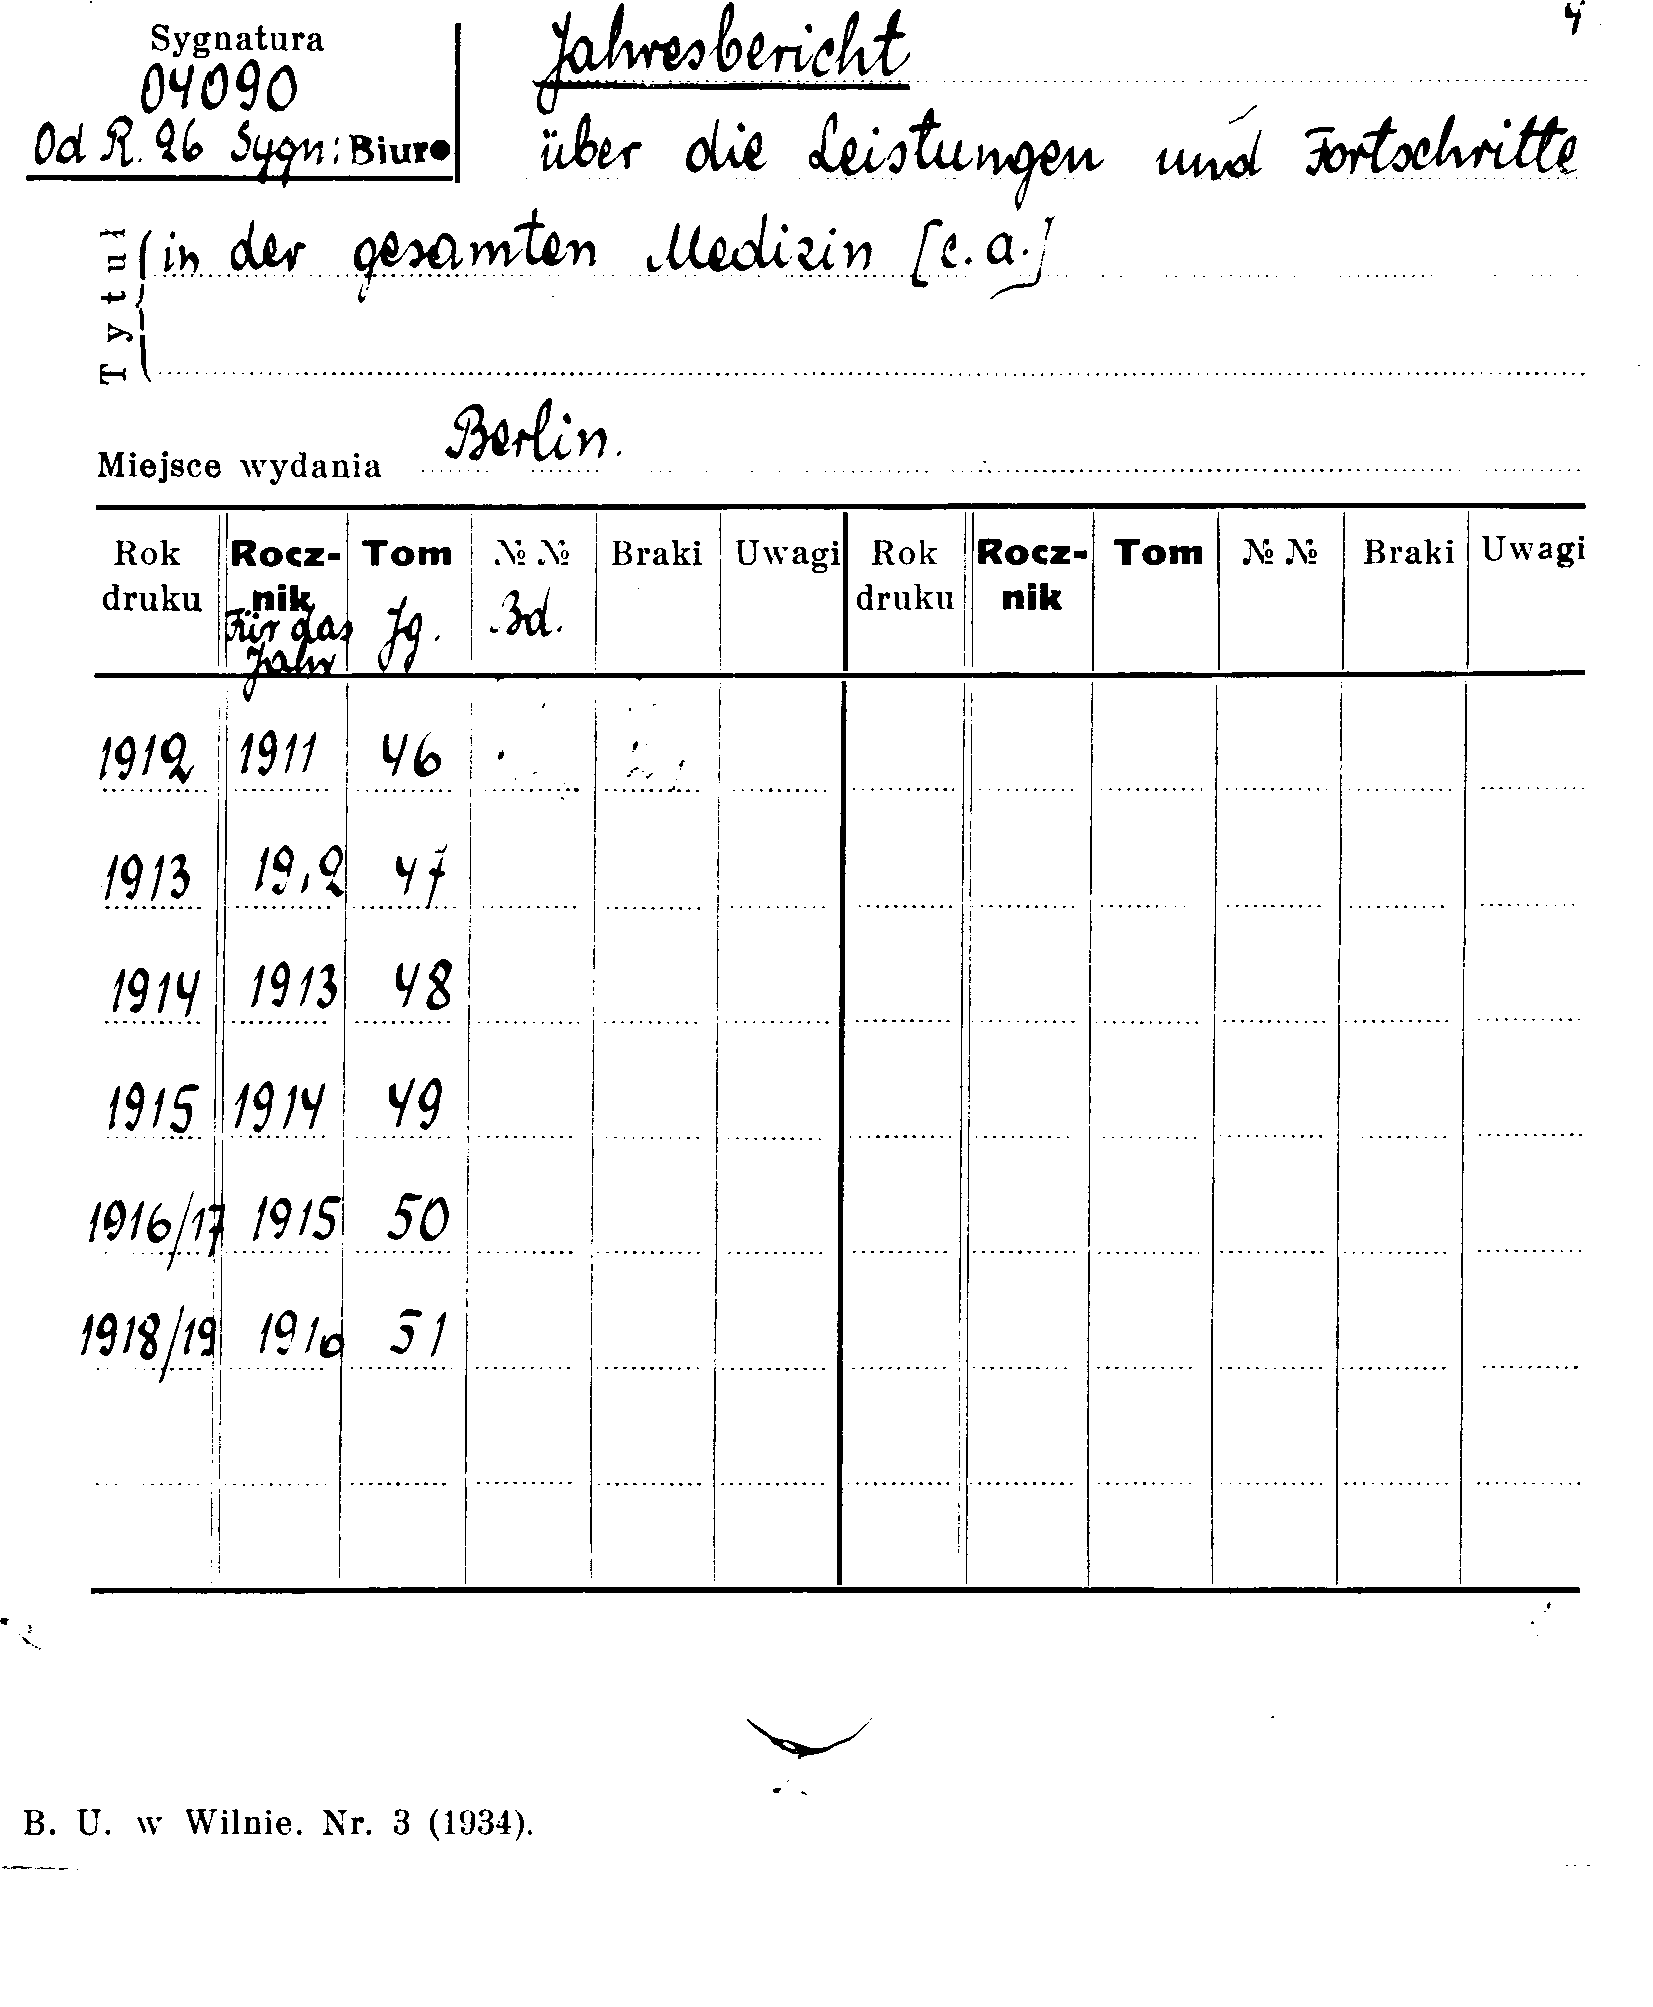 4
Sygnatura
04090
Od R. 26 Sygn: Biuro
Jahresbericht
über die Leistungen und Fortschritte
Tytuł
in der gesamten Medizin [c. a.]
Miejsce wydania Berlin.
Rok druku Rocznik Tom № № Braki Uwagi Rok druku Rocz-nik Tom № № Braki Uwagi
Für das Jahr Jg. Bd.
1912 1911 46
1913 1912 47
1914 1913 48
1915 1914 49
1916/17 1915 50
1918/19 1916 51
B. U. w Wilnie. Nr. 3 (1934).